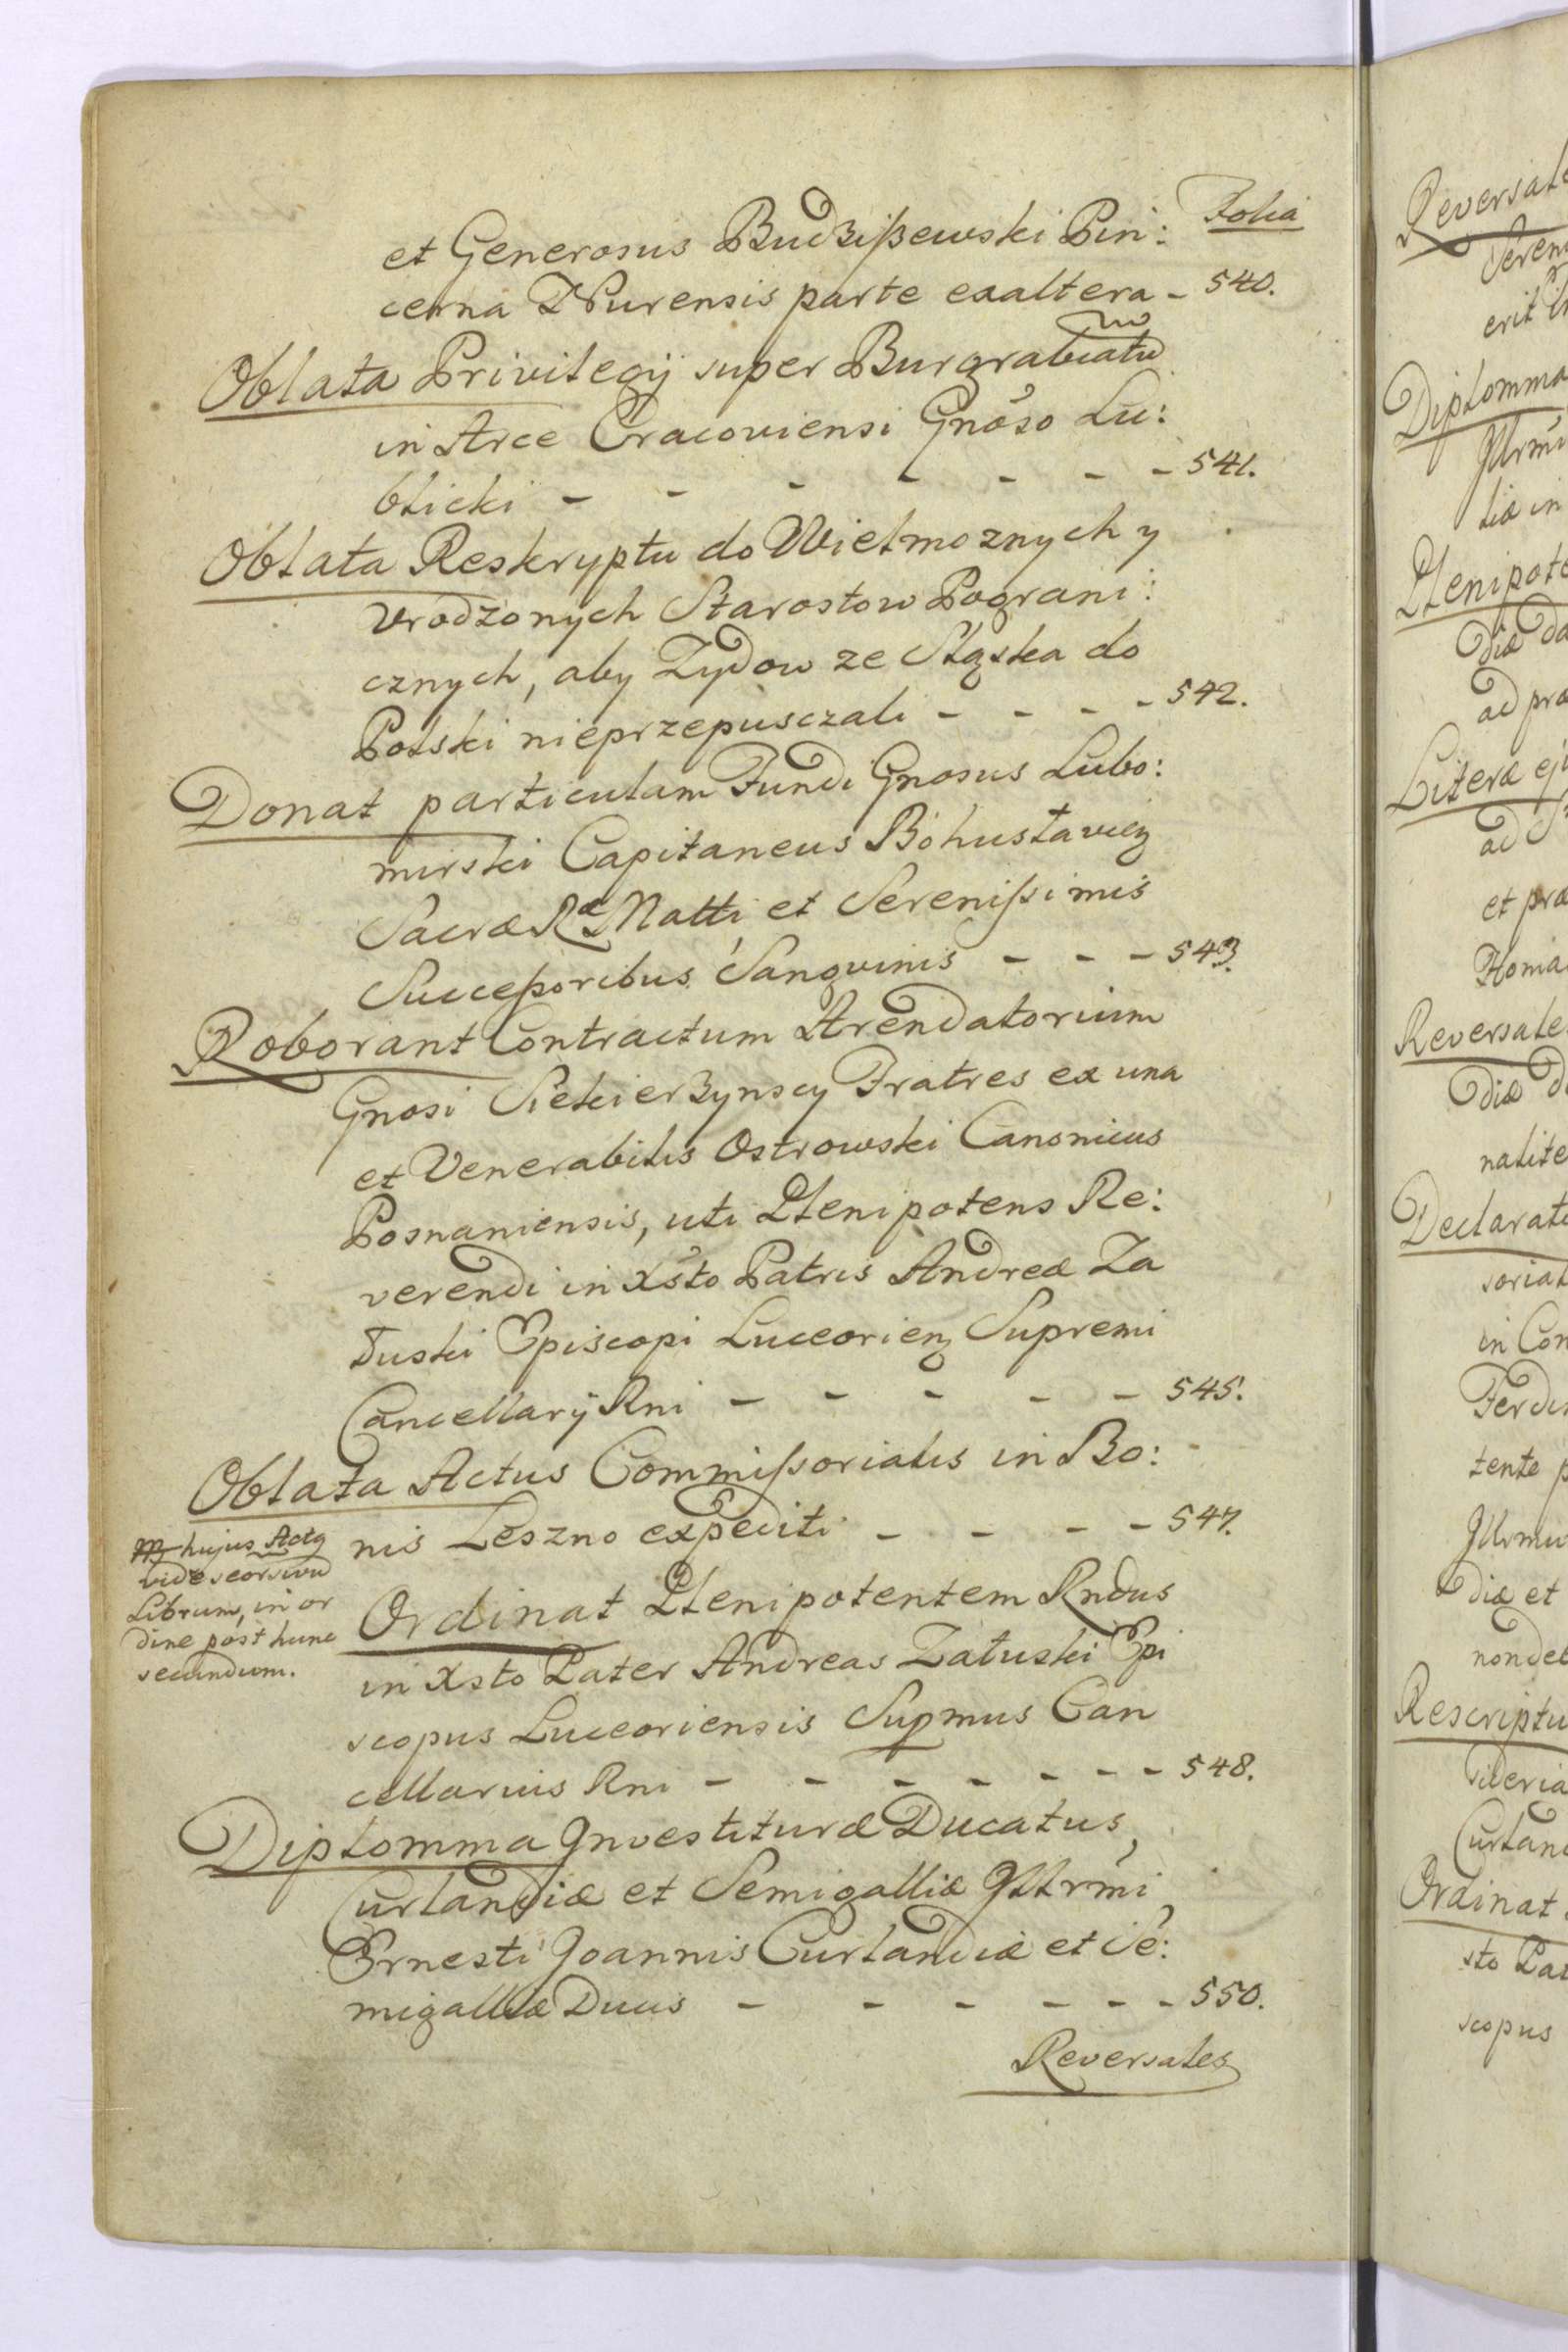 Folia
et Generosus Budziszewski Pin:
cerna Nurensis parte exaltera - 540.
Oblata Privilegij super Burgrabiatu
in Arce Cracoviensi Gnoso Lu:
blicki - - - - - - - 541.
Oblata Reskryptu do Wielmoznych y
Vrodzonych Starostow Pograni:
cznych, aby Zydow ze Sląska do
Polski nieprzepusczali - - - - 542.
Donat particulam Fundi Gnosus Lubo:
mirski Capitaneus Bohuslavien
Sacræ Ræ Matti et Serenissimis
Successoribus Sangvinis - - - 543.
Roborant Contractum Arendatorium
Gnosi Siekierzynscy Fratres ex una
et Venerabilis Ostrowski Canonicus
Posnaniensis, uti Plenipotens Re:
verendi in Xsto Patris Andreæ Za
łuski Episcopi Luceorien Supremi
Cancellarij Rni - - - - - 545.
Oblata Actus Commissorialis in Bo:
nis Leszno expediti - - - - 547.
hujus Actq
vide seorsivu
Librum, in or
dine post hunc
secundum.
Ordinat Plenipotentem Rndus
in Xsto Pater Andreas Załuski Epi
scopus Luceoriensis Supmus Can
cellarius Rni - - - - - - - 548.
Diplomma Investituræ Ducatus
Curlandiæ et Semigalliæ Illrmi
Ernesti Joannis Curlandiæ et Se:
migalliæ Ducis - - - - - - 550.
Reversales
Reversale
Seren
erit
Diplomma
Illrmi
liæ in
Plenipote
diæ
ad præ
Literæ
ad
et præ
Homa
Reversale
diæ
nalite
Declarat
soria
in Con
Ferdi
tente
Illrmu
diæ et
nondel
Rescriptu
Curlan
Ordinat
sto Pat
scopus